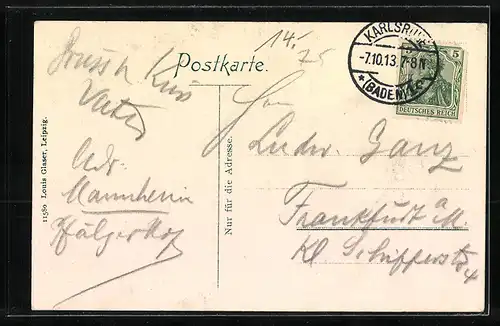 14./75
Postkarte.
KARLSRUHE
-7.10.13. 7-8 N
*(BADEN)1.c
5
DEUTSCHES REICH
Gruss u Kuss
Vater
Adr.
Mannheim
Pfälzerhof
Herrn
Ludw. Ganz
Frankfurt a M.
Kl Schifferstr 4
Nur für die Adresse.
11580 Louis Glaser, Leipzig.